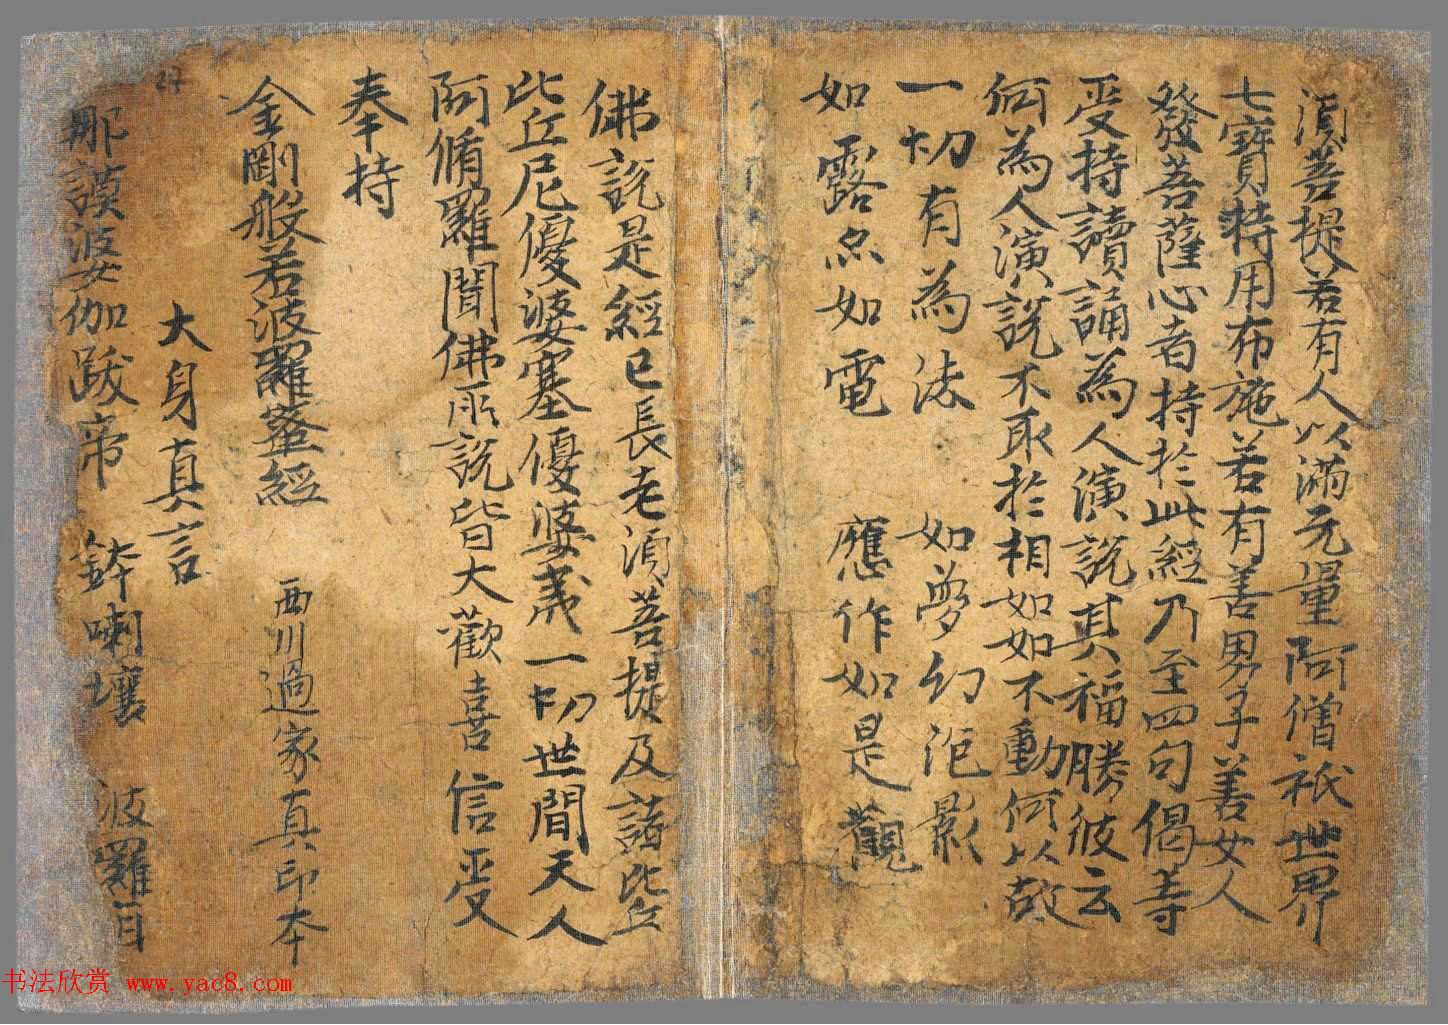 須菩提若有人以滿无量阿僧祇世界
七寶持用布施若有善男子善女人
發菩薩心者持於此經乃至四句偈等
受持讀誦為人演說其福勝彼云
何為人演說不取於相如如不動何以故
一切有為法 如夢幻泡影
如露亦如電 應作如是觀
佛說是經已長老須菩提及諸比丘
比丘尼優婆塞優婆夷一切世間天人
阿脩羅聞佛所說皆大歡喜信受
奉持
金剛般若波羅蜜經 西川過家真印本
大身真言
那謨婆伽跋帝 鉢喇壤 波羅
书法欣赏 www.yac8.com